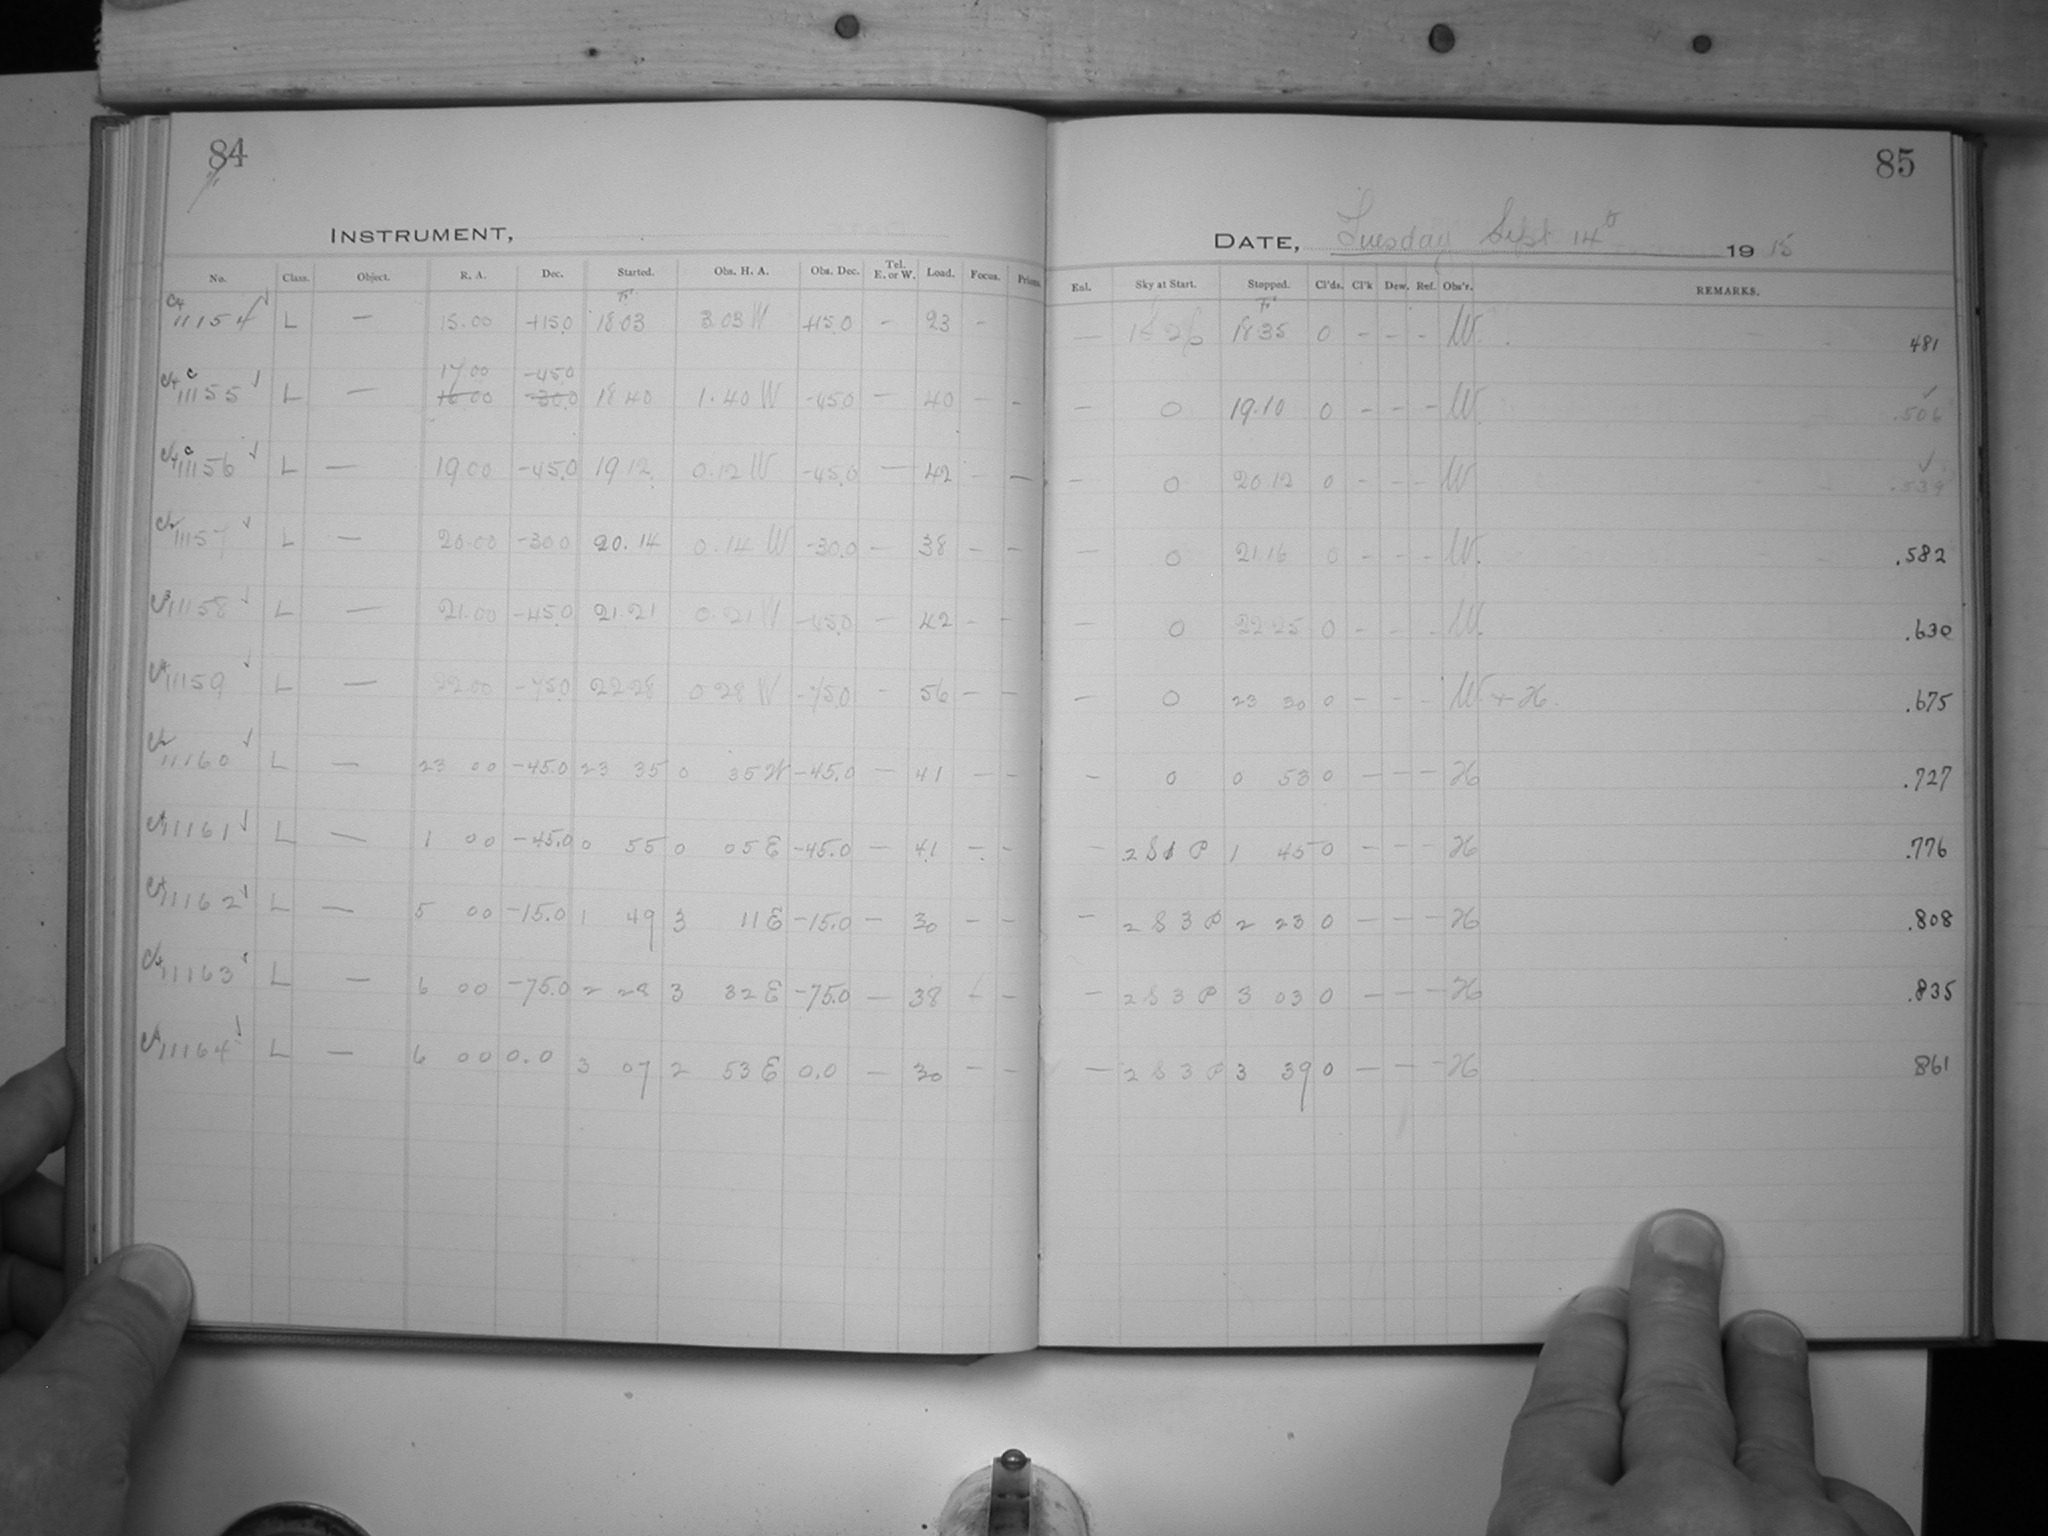 84
85
INSTRUMENT,
DATE, Tuesday Sept 14th 1915
No. Class. Object. R. A. Dec. Started. Obs. H. A. Obs. Dec. Tel. E. or W. Load. Focus. Prisms. Exl. Sky at Start. Stopped. Cl'ds. Cl'k Dew. Ref. Obs'r. REMARKS.
11154 L — 15.00 +15.0 18 03 3.03 W +15.0 - 23 - — 18 35 0 - - - W. 481
17 00 -45.0
11155 L — 16 00 -30.0 18 40 1.40 W -45.0 - 40 - - — 0 19.10 0 - - - W. .506
11156 L — 19.00 -45.0 19 12 0.12 W -45.0 — 42 - — - 0 20 12 0 - - - W .539
11157 L — 20.00 -30.0 20.14 0.14 W -30.0 — 38 - - — 0 21.16 0 - - - W. .582
11158 L — 21.00 -45.0 21.21 0.21 W -45.0 — 42 - - — 0 22 25 0 - - - W. .630
11159 L — 22.00 -75.0 22 28 0 28 W -75.0 - 56 - - — 0 23 30 0 - - - W + H. .675
11160 L — 23 00 -45.0 23 35 0 35 W -45.0 — 41 - - - 0 0 53 0 - - - H .727
11161 L — 1 00 -45.0 0 55 0 05 E -45.0 — 41 - - — 2 S 1 P 1 45 0 - - - H .776
11162 L — 5 00 -15.0 1 49 3 11 E -15.0 - 30 - - - 2 S 3 P 2 23 0 - - - H .808
11163 L — 6 00 -75.0 2 28 3 32 E -75.0 — 38 - - - 2 S 3 P 3 03 0 - - - H .835
11164 L — 6 00 0.0 3 07 2 53 E 0.0 — 30 - - — 2 S 3 P 3 39 0 - - - H 861